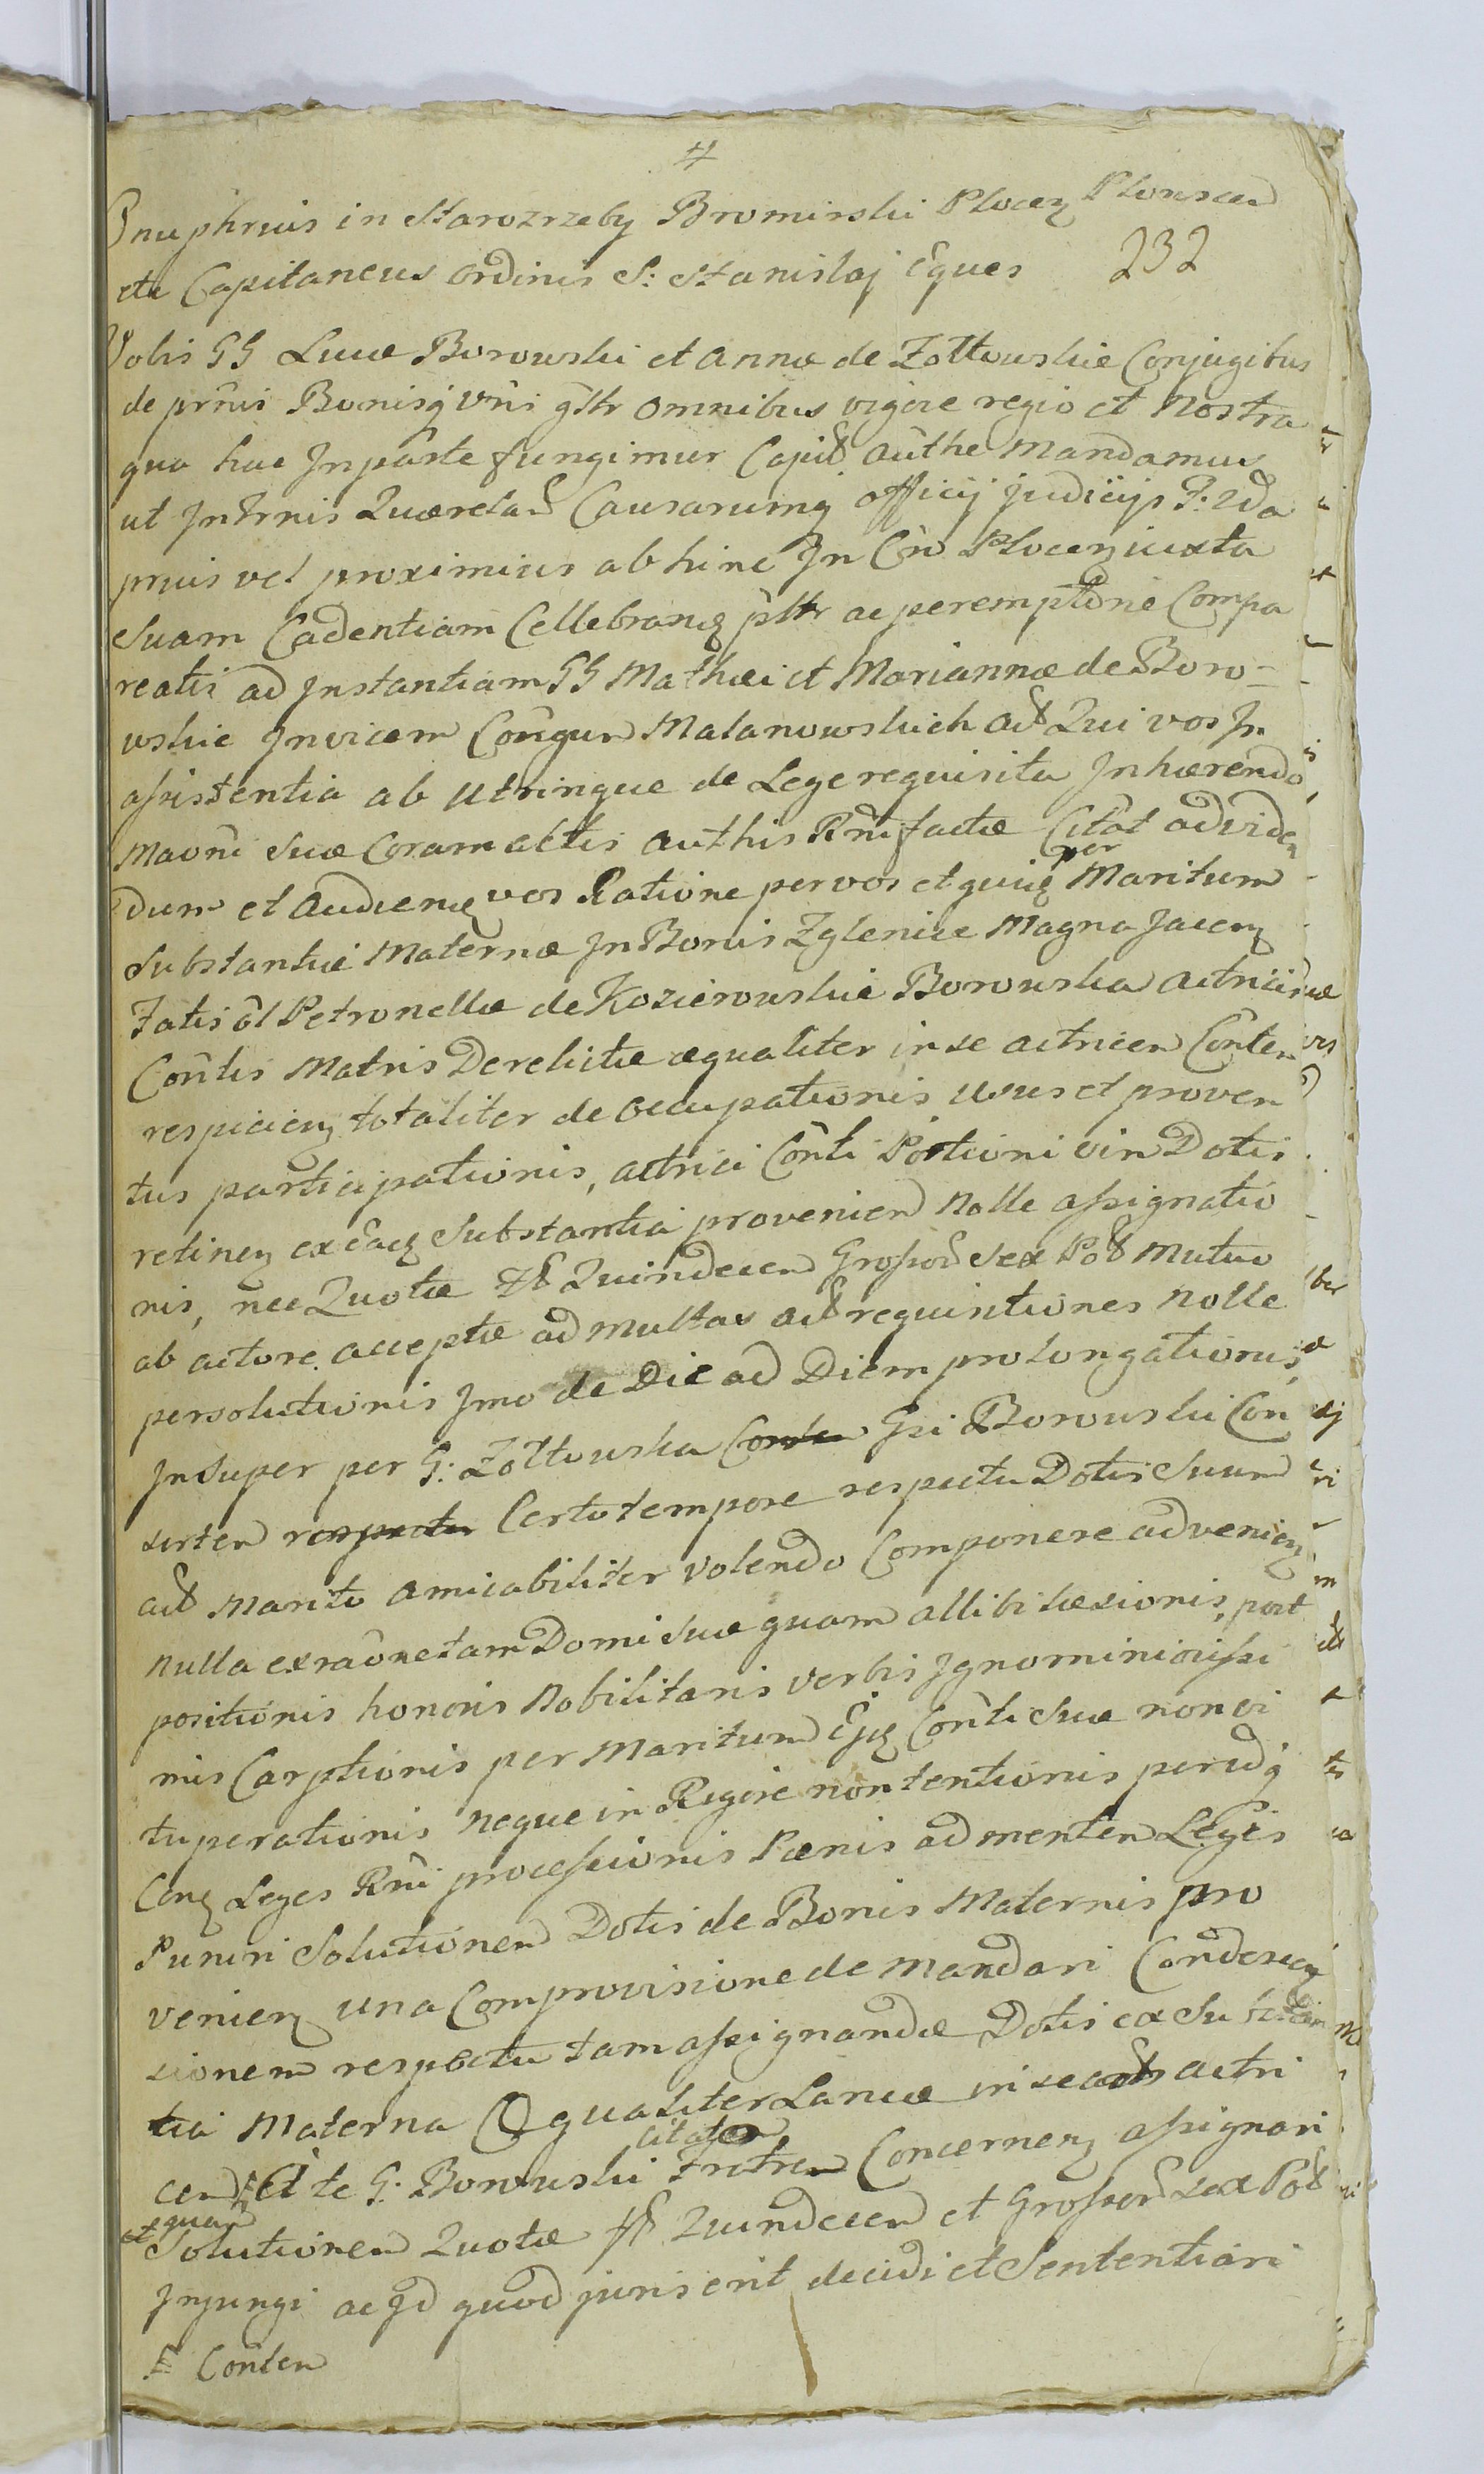 #
Onuphrius in Starozrzeby Bromirski Plocen Plonscen
etc Capitaneus Ordinis S: Stanislaj Eques 232
Vobis GG Lucæ Borowski et Annæ de Zołtowskie Conjugibus
de prmis Bonisq vris gltr omnibus vigore regio et Nostra
qua hac In parte fungimur Authe Mandamus
ut In Trnis Querelar Causarumq officij judicijs
prius vel proximius ab hinc In Plocen iuxta
Suam Cadentiam Cellebran pltr ac peremptorie Compa
reatis ad Instantiam GG Mathæi et Mariannæ de Boro=
wskie Invicem Conjgum Malanowskich Qui vos In
assistentia ab utrinque de Lege requisita Inhærendo
Maoni Suæ Coram actis authis Rmi factæ Citat ad viden
dum et audien vos Ratione per vos et quid per Maritum
Substantiæ Maternæ In Bonis Zglenice Magna Jacen
Fatis ol Petronellæ de Kozierowskie Borowska actricis
Contis Matris Derelictæ æqualiter in se actricem Conten
respicien totaliter de occupationis usus et proven
tus participationis, actrici Conti Portioni vim Dotis
retinen ex Substantia provenien Nolle assignatio
nis, nec Quotæ Quindecem Grossor Sex Mutuo
ab actore acceptæ ad multas requisitiones Nolle
persolutionis Imo de Die ad Diem prolongationis,
Insuper per G: Zołtowska Gsi Borowski Con
sortem respectu Certo tempore respectu Dotis Suum
Marito amicabiliter volendo Componere advenien
Nulla ex raone tam Domi Suæ quam allibi læsionis, post
positionis honoris Nobilitaris verbis Ignominiosissi
mis Carptionis per Maritum Ejq Conti Suæ non vi
tuperationis neque in Rigore non tentionis
Con Leges Rni processionis Pænis ad mentem Legis
Puniri Solutionem Dotis de Bonis Maternis pro
venien una Comprovisione de Mandari Condescen
sionem respectu tam assignandæ Dotis ex Substan
tia Materna Æqualiter Lance in se actri
cem Et te G: Borowski citatem Fratrem Concernen assignari
et quam
Solutionem Quotæ Quindecem et Grossor Sex
Injungi ac Id quod juris erit decidi et Sententiari
Conten